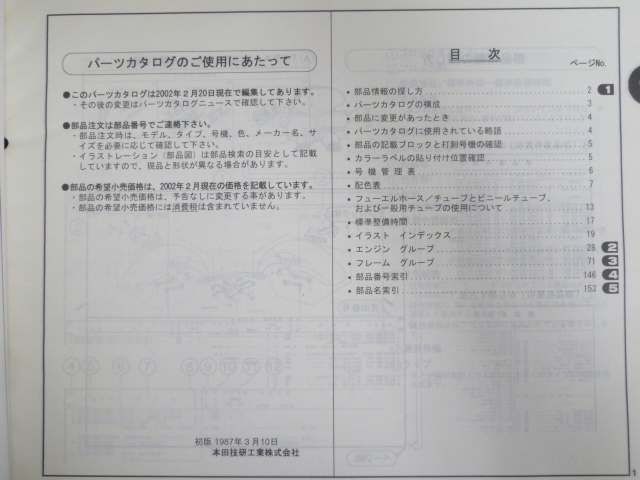 パーツカタログのご使用にあたって
●このパーツカタログは2002年2月20日現在で編集してあります。
・その後の変更はパーツカタログニュースで確認して下さい。
●部品注文は部品番号でご連絡下さい。
・部品注文時は、モデル、タイプ、号機、色、メーカー名、サ
イズを必要に応じて確認して下さい。
・イラストレーション（部品図）は部品検索の目安として記載
していますので、現品と形状が異なる場合があります。
●部品の希望小売価格は、2002年2月現在の価格を記載しています。
・部品の希望小売価格は、予告なしに変更する事があります。
・部品の希望小売価格には消費税は含まれていません。
初版 1987年3月10日
本田技研工業株式会社
目 次
ページNo.
・部品情報の探し方 2 1
・パーツカタログの構成 3
・部品に変更があったとき 4
・パーツカタログに使用されている略語 4
・部品の記載ブロックと打刻号機の確認 5
・カラーラベルの貼り付け位置確認 5
・号 機 管 理 表 6
・配色表 7
・フューエルホース／チューブとビニールチューブ、
および一般用チューブの使用について 13
・標準整備時間 17
・イラスト インデックス 19
・エンジン グループ 28 2
・フレーム グループ 71 3
・部品番号索引 146 4
・部品名索引 153 5
1